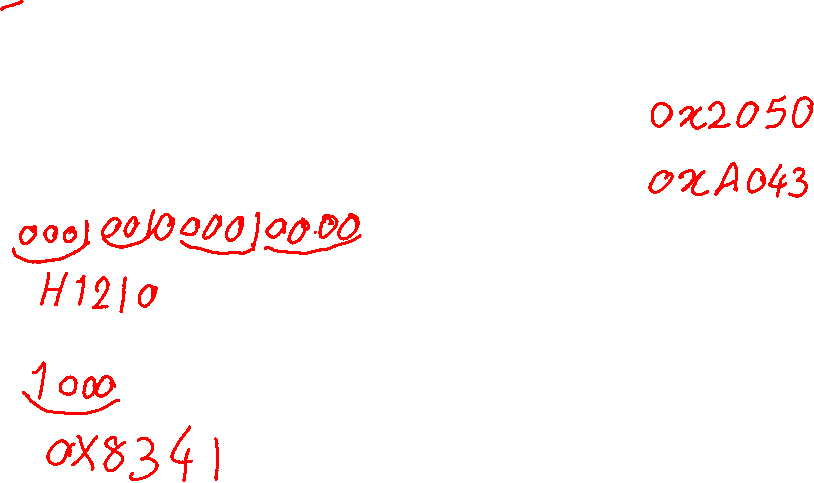 0x2050
0xA043
0001001000010000
H1210
1000
0X8341